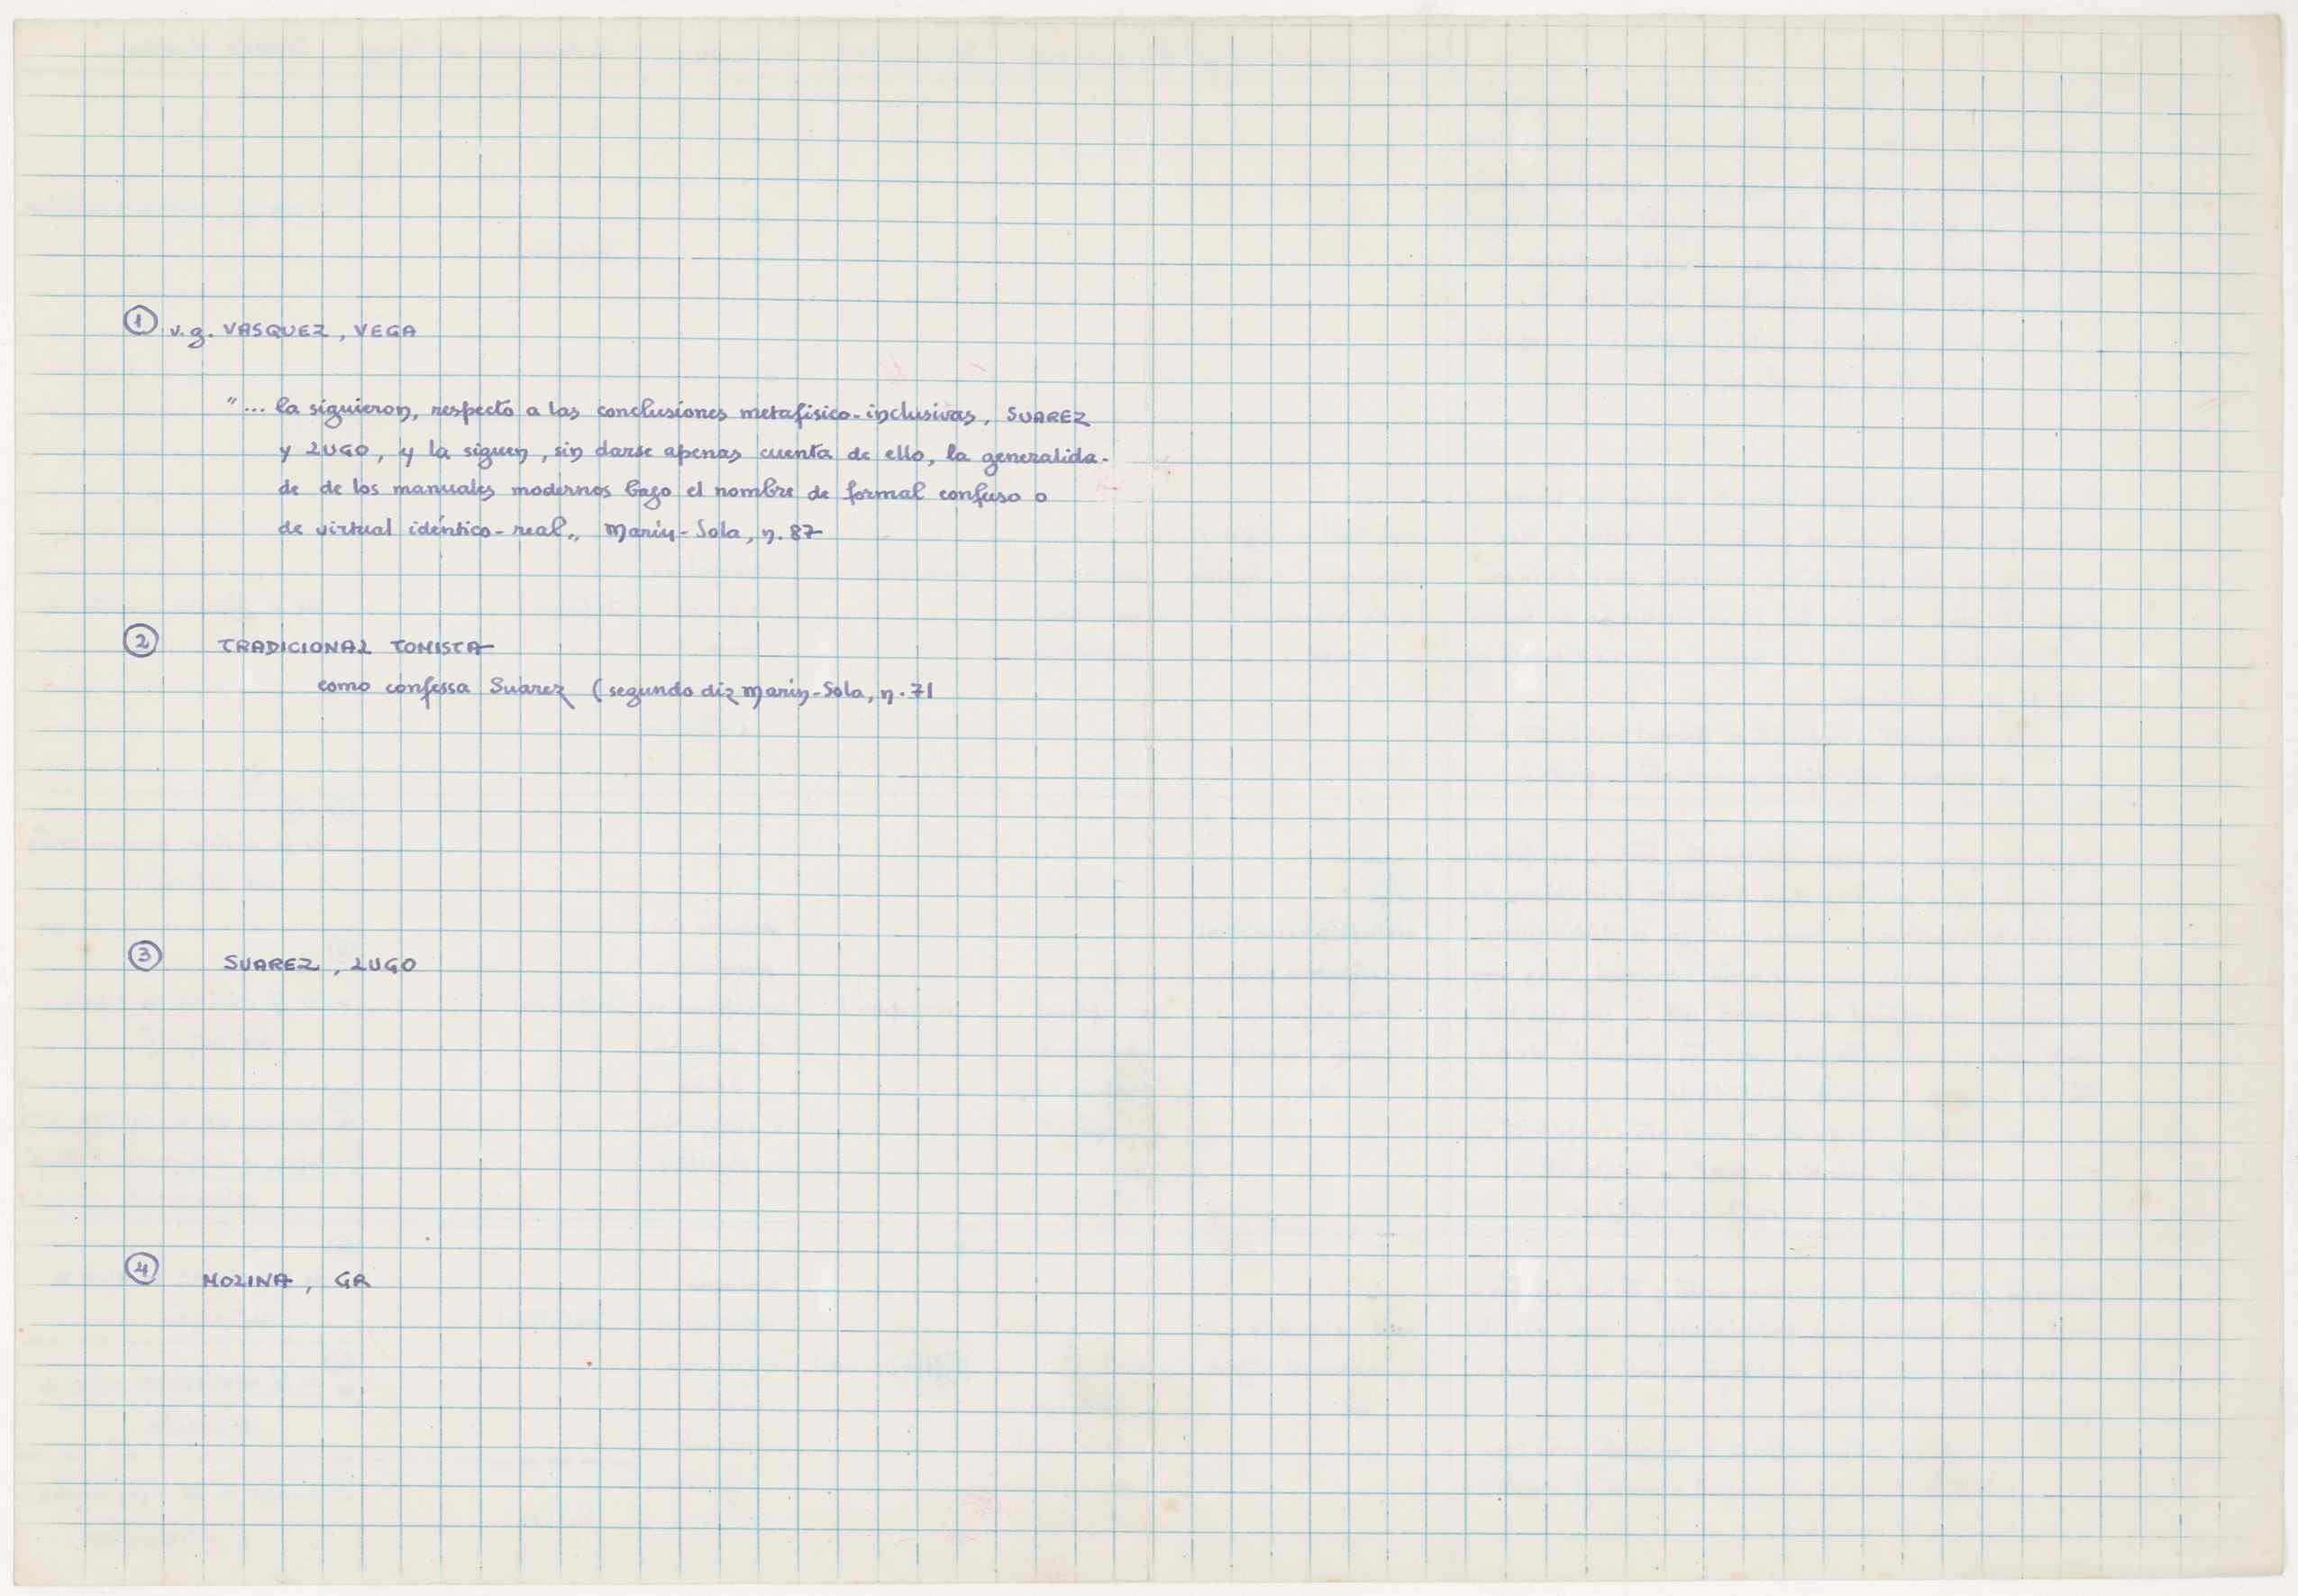 ① v.g. VASQUEZ, VEGA
"... la siguieron, respecto a las conclusiones metafisico-inclusivas, SUAREZ
y LUGO, y la siguen, sin darse apenas cuenta de ello, la generalida-
de de los manuales modernos bajo el nombre de formal confuso o
de virtual idéntico-real„ Marín-Sola, n. 87
② TRADICIONAL TOMISTA
como confessa Suarez (segundo diz Marín-Sola, n. 71
③ SUAREZ, LUGO
④ MOLINA, GR